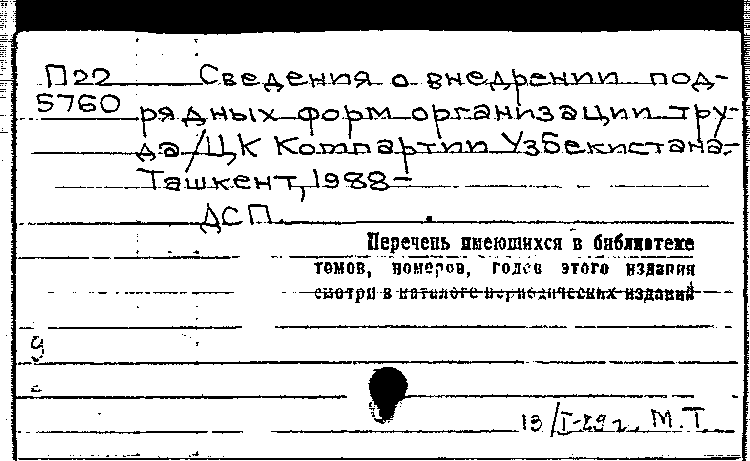 П22 Сведения о внедрении под-
5760 рядных форм организации тру-
да/ЦК Компартии Узбекистана.-
Ташкент, 1988-
ДСП.
Перечень имеющихся в библиотеке
томов, номеров, годов этого издания
смотри в каталоге периодических изданий
9
13/I-89 г. М.Т.